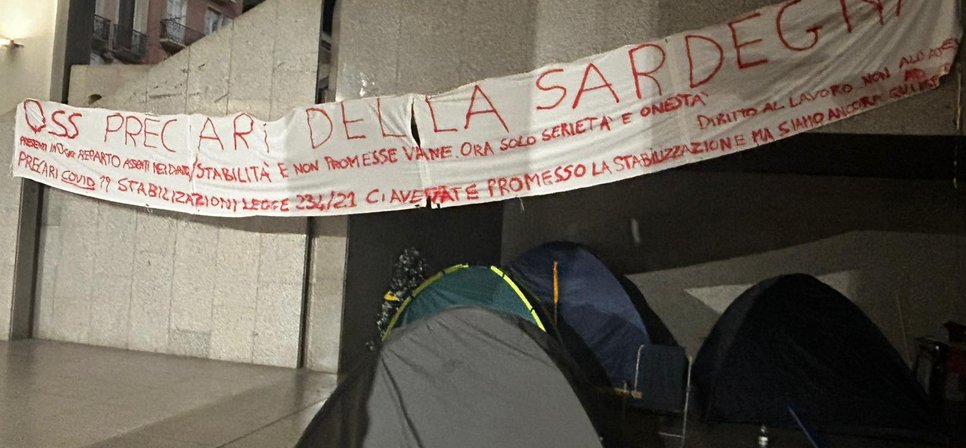 OSS PRECARI DELLA SARDEGNA
PRESENTI IN OGNI REPARTO ASSENTI NEI DIRITTI/STABILITÀ E NON PROMESSE VANE. ORA SOLO SERIETA' E ONESTA' DIRITTO AL LAVORO NON ALL'
PRECARI COVID 19 STABILIZAZIONI LEGGE 234/21 CI AVEVATE PROMESSO LA STABILIZZAZIONE MA SIAMO ANCORA QUI